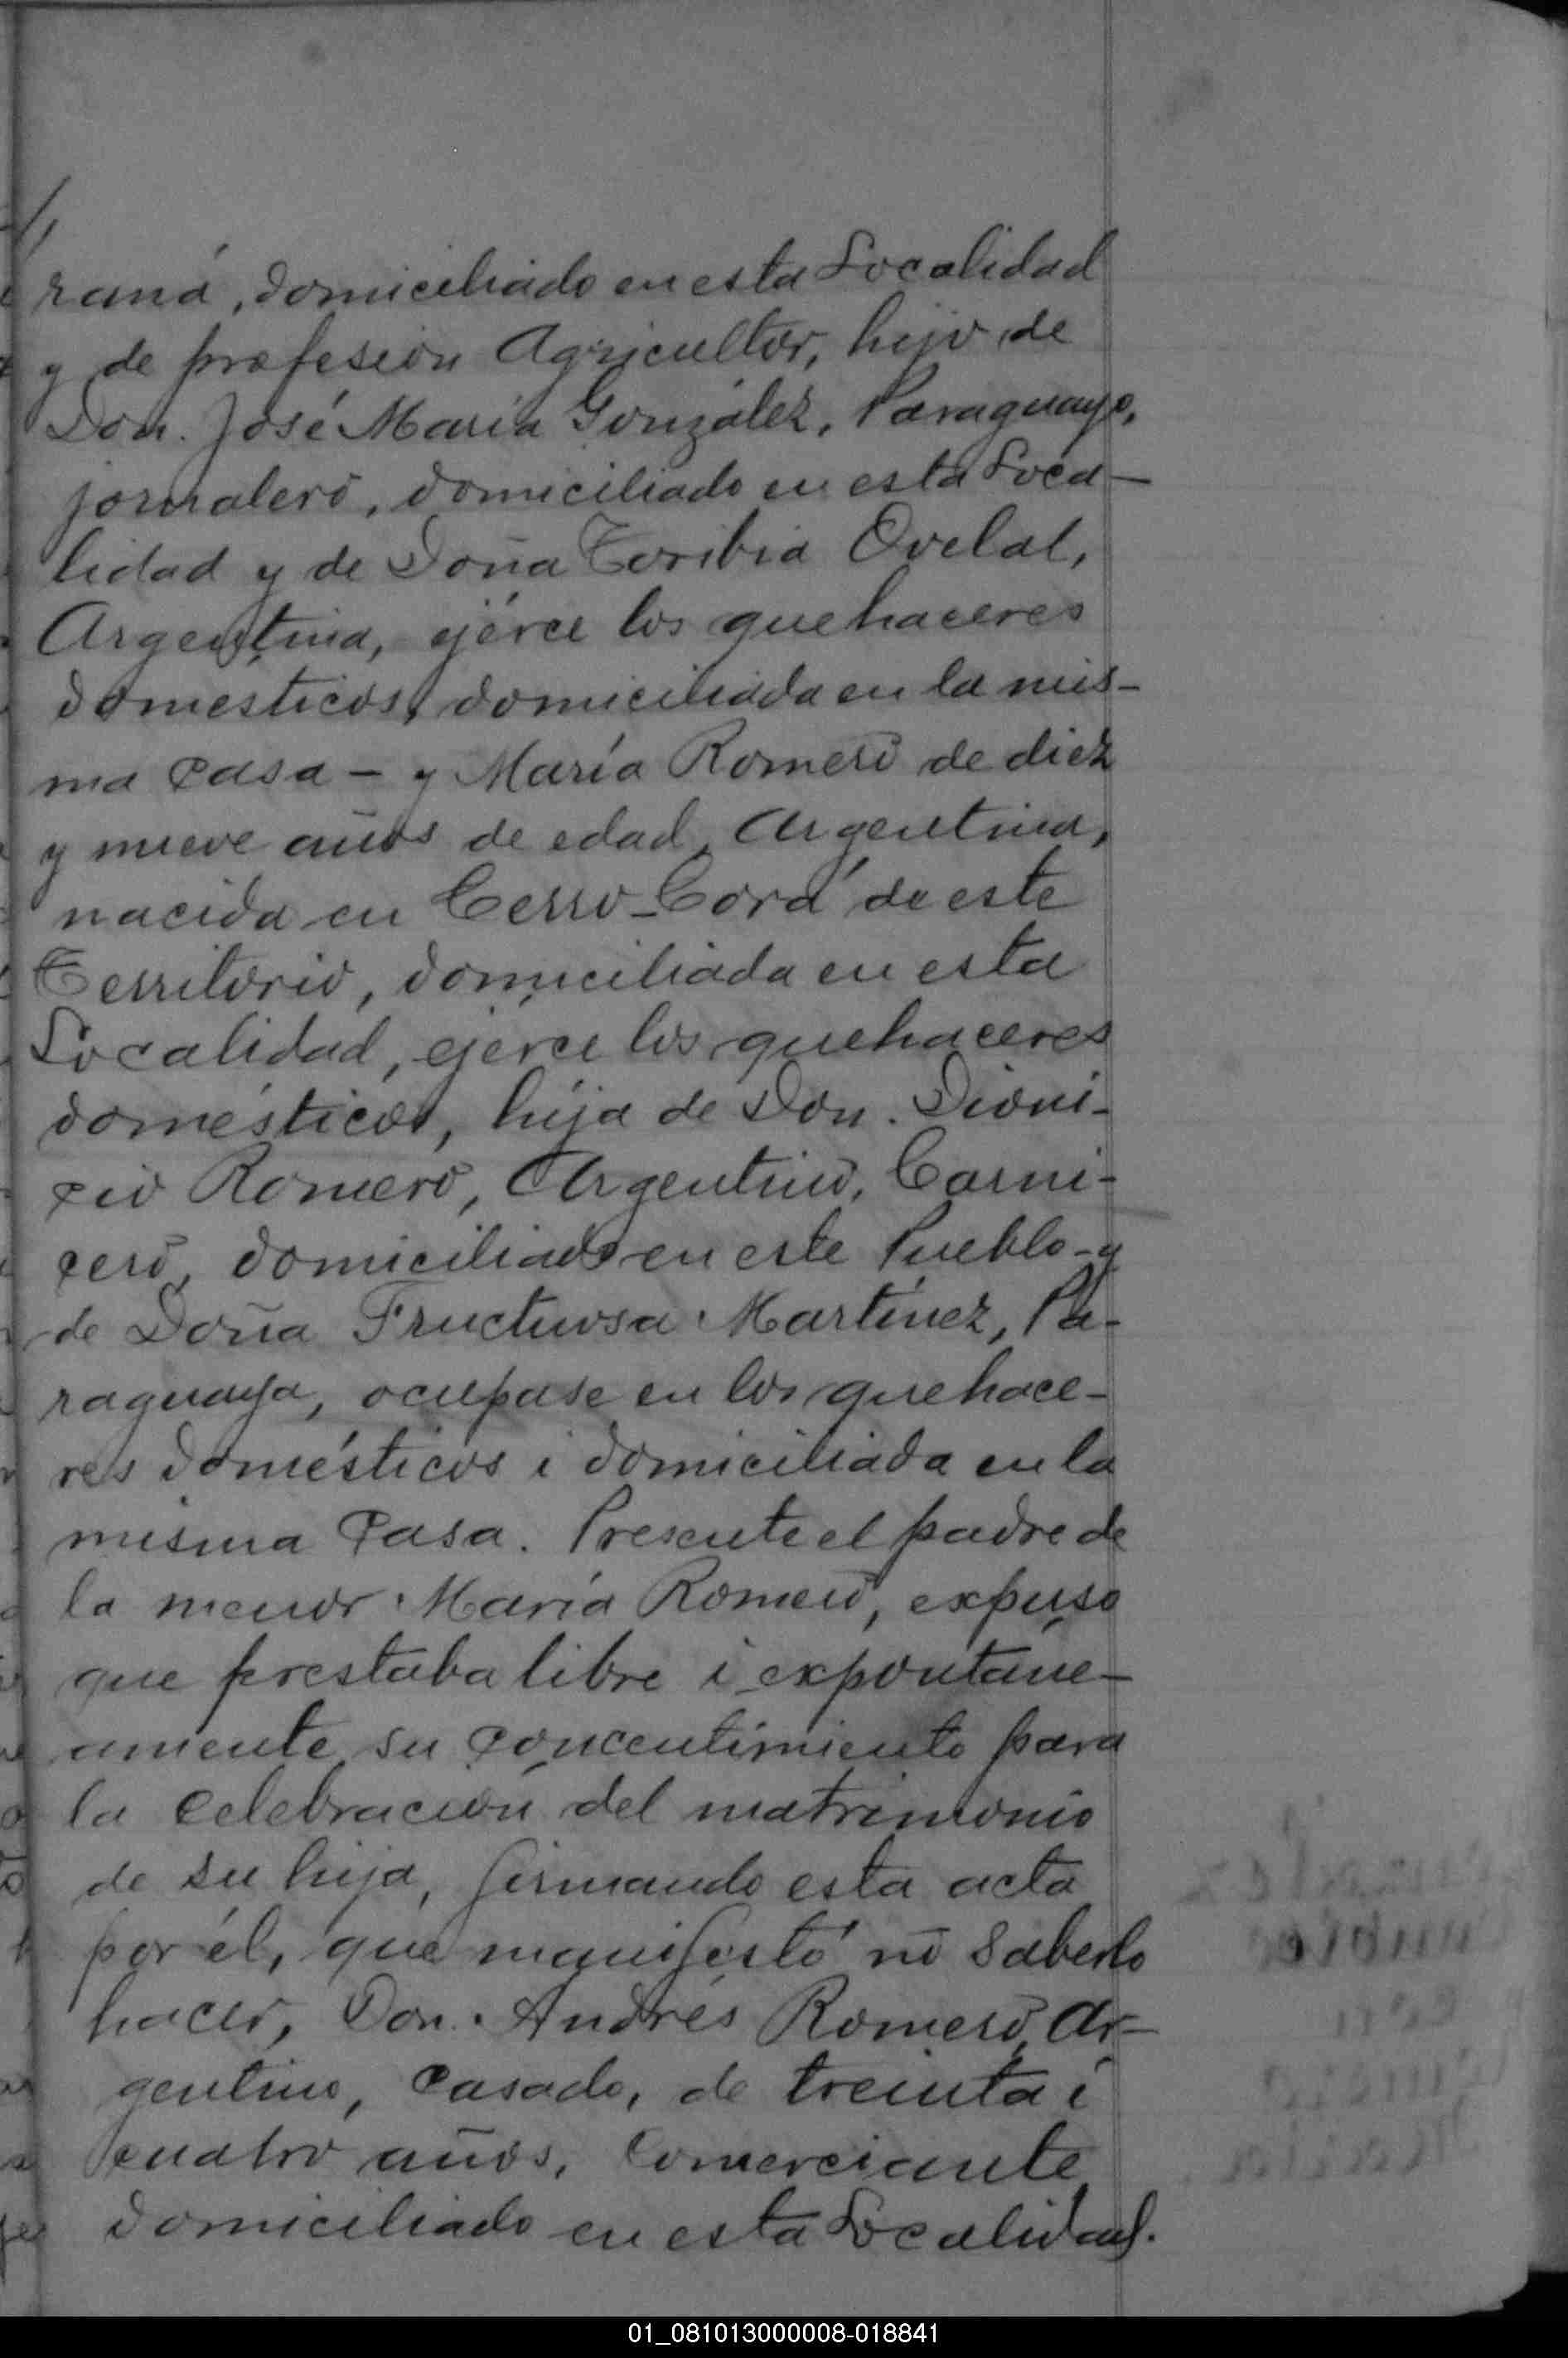 raná, domiciliado en esta Localidad
y de profesión Agricultor, hijo de
Don. José María González, Paraguayo,
jornalero, domiciliado en esta Loca-
lidad y de Doña Toribia Ovelal,
Argentina, ejérce los quehaceres
domesticos, domiciliada en la mis-
ma casa - y María Romero de diez
y nueve años de edad, Argentina,
nacida en Cerro-Corá de este
Territorio, domiciliada en esta
Localidad, ejérce los quehaceres
domésticos, hija de Don. Dioni-
cio Romero, Argentino, Carni-
cero, domiciliado en este Pueblo - y
de Doña Fructuosa Martínez, Pa-
raguaya, ocupase en los quehace-
res domésticos i domiciliada en la
misma casa. Presente el padre de
la menor María Romero, expuso
que prestaba libre i expontáne-
amente su concentimiento para
la celebración del matrimonio
de su hija, firmando esta acta
por él, que manifestó no saberlo
hacer, Don. Andrés Romero, Ar-
gentino, casado, de treinta i
cuatro años, Comerciante
domiciliado en esta Localidad.
01_081013000008-018841